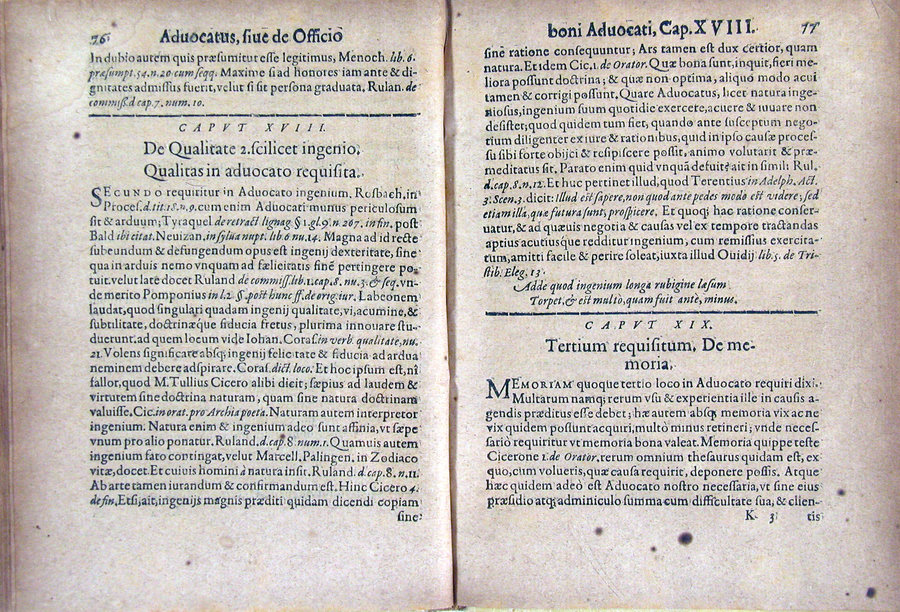 76. Advocatus, siue de Officio
In dubio autem quis præsumitur esse legitimus, Menoch. lib. 6.
præsumpt. 54. n. 20 cum seqq. Maxime si ad honores iam ante & di-
gnitates admissus fuerit, velut si sit persona graduata, Rulan. de
commiss. d cap. 7. num. 10.
CAPVT XVIII.
De Qualitate 2. scilicet ingenio,
Qualitas in advocato requisita.
SECUNDO requiritur in Advocato ingenium, Rosbach. in
Proces. d. tit. 18. n. 9. cum enim Advocati munus periculosum
sit & arduum; Tyraquel de retract lignag. § 1. gl. 9. n. 267. in fin. post
Bald ibi citat. Neuizan. in sylua nupt. lib 6 nu. 14. Magna ad id recte
subeundum & defungendum opus est ingenij dexteritate, sine
qua in arduis nemo vnquam ad fælicitatis finē pertingere po-
tuit. velut late docet Ruland de commiss. lib. 1. cap. 8. nu. 3. & seq. vn-
de merito Pomponius in l. 2. §. post hunc ff. de orig. iur. Labeonem
laudat, quod singulari quadam ingenij qualitate, vi, acumine, &
subtilitate, doctrinæque fiducia fretus, plurima innouare stu-
duerunt. ad quem locum vide Iohan. Coras. in verb. qualitate, nu.
21. Volens significare absq; ingenij felicitate & fiducia ad ardua
neminem debere adspirare. Coras. dict. loco. Et hoc ipsum est, ni
fallor, quod M. Tullius Cicero alibi dicit; sæpius ad laudem &
virtutem sine doctrina naturam, quam sine natura doctrinam
valuisse. Cic. in orat. pro Archia poeta. Naturam autem interpretor
ingenium. Natura enim & ingenium adeo sunt affinia, vt sæpe
vnum pro alio ponatur. Ruland. d. cap. 8. num. 1. Quamuis autem
ingenium fato contingat, velut Marcell. Palingen. in Zodiaco
vitæ, docet. Et cuiuis homini à natura insit. Ruland. d. cap. 8. n. 11.
Ab arte tamen iurandum & confirmandum est. Hinc Cicero 4.
de fin. Etsi, ait, ingenijs magnis præditi quidam dicendi copiam
sine
boni Advocati, Cap. XVIII. 77
sinē ratione consequuntur; Ars tamen est dux certior, quam
natura. Et idem Cic. 1. de Orator. Quæ bona sunt, inquit, fieri me-
liora possunt doctrina; & quæ non optima, aliquo modo acui
tamen & corrigi possunt. Quare Advocatus, licet natura inge-
niosus, ingenium suum quotidie exercere, acuere & iuuare non
desistet; quod quidem tum fiet, quando ante susceptum nego-
tium diligenter ex iure & rationibus, quid in ipso causæ proces-
su sibi forte objici & resipiscere possit, animo volutarit & præ-
meditatus sit. Parato enim quid vnquā defuit? ait in simili Rul.
d. cap. 8. n. 12. Et huc pertinet illud, quod Terentius in Adelph. Act.
3. Scen. 3. dicit: Illud est sapere, non quod ante pedes modo est videre, sed
etiam illa, quæ futura sunt, prospicere. Et quoq; hac ratione conser-
uatur, & ad quæuis negotia & causas vel ex tempore tractandas
aptius acutiusque redditur ingenium, cum remissius exercita-
tum, amitti facile & perire soleat, iuxta illud Ouidij lib. 5. de Tri-
stib. Eleg. 13.
Adde quod ingenium longa rubigine læsum
Torpet, & est multo, quam fuit ante, minus.
CAPVT XIX.
Tertium requisitum, De me-
moria.
MEMORIAM quoque tertio loco in Advocato requiri dixi.
Multarum namq; rerum vsu & experientia ille in causis a-
gendis præditus esse debet; hæ autem absq; memoria vix ac ne
vix quidem possunt acquiri, multò minus retineri; vnde neces-
sariò requiritur vt memoria bona valeat. Memoria quippe teste
Cicerone 1. de Orator. rerum omnium thesaurus quidam est, ex
quo, cum volueris, quæ causa requirit, deponere possis. Atque
hæc quidem adeò est Advocato nostro necessaria, vt sine eius
præsidio atq; adminiculo summa cum difficultate sua, & clien-
K 3 tis